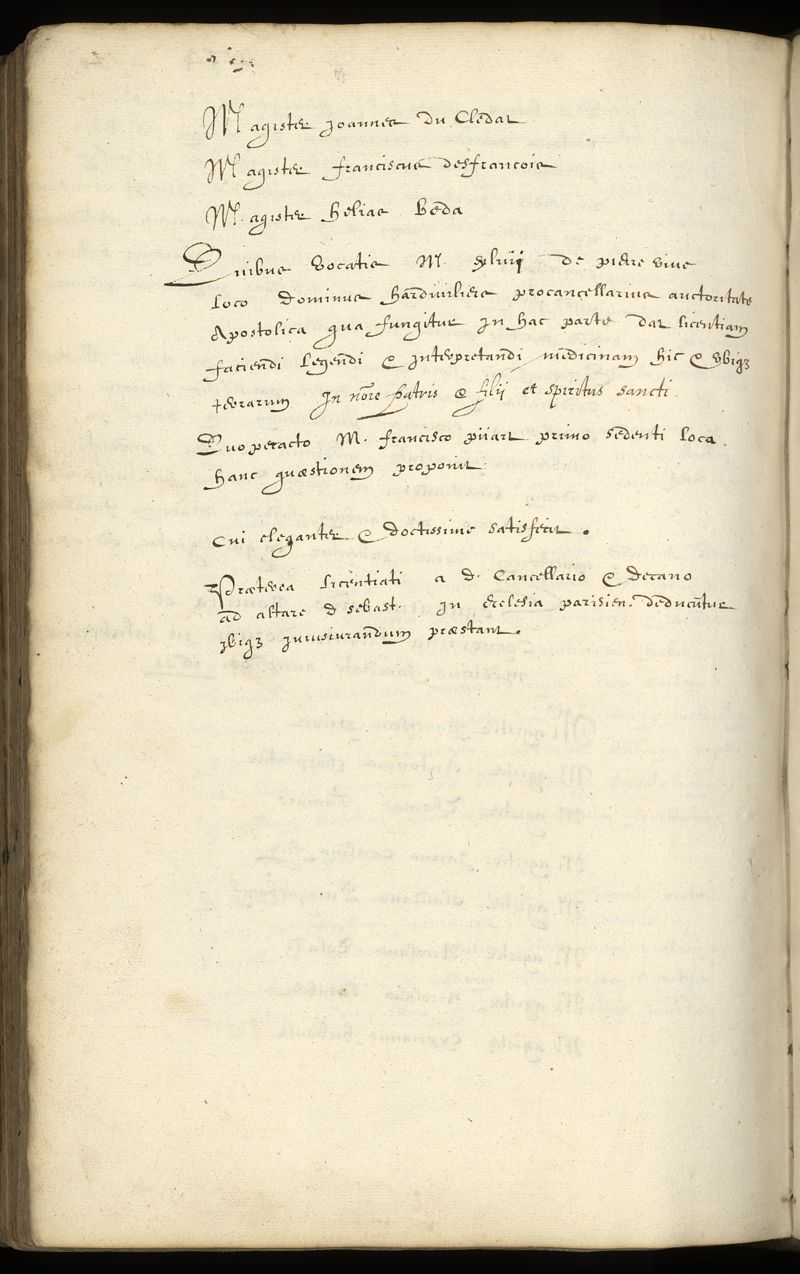 Magister Joannes du Cledat
Magister franciscus desfrancois
M. agister Helias Beda
Quibus vocatis M. de pierre vive
loco dominus harduilliers procancellarius auctoritate
Apostolica qua fungitur in hac parte dat licentiam
faciendi legendi & interpretandi medicinam hic & ubiqȝ
terrarum In noīe patris & filij et spiritus sancti.
Quo peracto M. francisco pijart primo sedenti loca.
hanc quæstionem proponit
Cui eleganter & doctissime satisfecit.
Præterea licentiati a d. Cancellario & decano
ad altare d sebast. in ecclesia parisien. deducūtur
ibiqȝ iurisiurandum præstant.